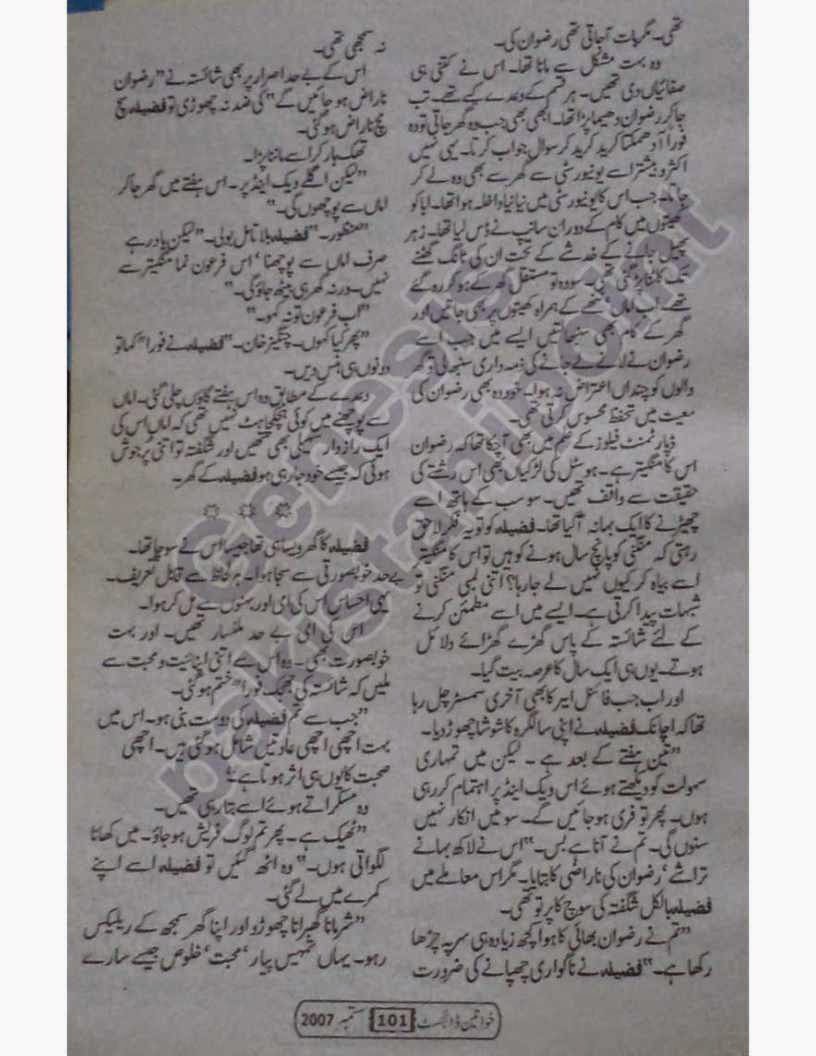 تھی۔ مگر بات آجاتی تھی رضوان کی۔
وہ بہت مشکل سے مانا تھا۔ اس نے کتنی ہی
صفائیاں دی تھیں۔ ہر قسم کے وعدے کیے تھے۔ تب
جاکر رضوان دھیما پڑا تھا۔ ابھی بھی جب وہ گھر جاتی تو وہ
فوراً آدھمکتا کرید کرید کر سوال جواب کرتا۔ یہی نہیں
اکثر و بیشتر اسے یونیورسٹی سے گھر سے بھی وہ لے کر
جاتا۔ جب اس کا یونیورسٹی میں نیا نیا داخلہ ہوا تھا۔ ابا کو
کھیتوں میں کام کے دوران سانپ نے ڈس لیا تھا۔ زہر
پھیل جانے کے خدشے کے تحت ان کی ٹانگ گھٹنے
تک کاٹنا پڑ گئی تھی۔ سو وہ تو مستقل گھر کے ہو کر رہ گئے
تھے۔ اب اماں ننھے کے ہمراہ کھیتوں پر بھی جاتیں اور
گھر کے کام بھی سنبھالتیں ایسے میں جب اسے
رضوان نے لانے لے جانے کی ذمہ داری سنبھالی تو گھر
والوں کو چنداں اعتراض نہ ہوا۔ خود وہ بھی رضوان کی
معیت میں تحفظ محسوس کرتی تھی۔
ڈپارٹمنٹ فیلوز کے علم میں بھی آچکا تھا کہ رضوان
اس کا منگیتر ہے۔ ہوسٹل کی لڑکیاں بھی اس رشتے کی
حقیقت سے واقف تھیں۔ سو سب کے ہاتھ اسے
چھیڑنے کا ایک بہانہ آگیا تھا۔ فضیلہ کو تو یہ فکر لاحق
رہتی کہ منگنی کو پانچ سال ہونے کو ہیں تو اس کا منگیتر
اسے بیاہ کر کیوں نہیں لے جارہا؟ اتنی لمبی منگنی تو
شبہات پیدا کرتی ہے۔ ایسے میں اسے مطمئن کرنے
کے لئے شائستہ کے پاس گھڑے گھڑائے دلائل
ہوتے۔ یوں ہی ایک سال کا عرصہ بیت گیا۔
اور اب جب فائنل ایر کا بھی آخری سمسٹر چل رہا
تھا کہ اچانک فضیلہ نے اپنی سالگرہ کا شوشا چھوڑ دیا۔
”تین ہفتے کے بعد ہے ۔ لیکن میں تمہاری
سہولت کو دیکھتے ہوئے اس ویک اینڈ پر اہتمام کر رہی
ہوں۔ پھر تو فری ہوجائیں گے۔ سو میں انکار نہیں
سنوں گی۔ تم نے آنا ہے بس۔“ اس نے لاکھ بہانے
تراشے، رضوان کی ناراضی کا بتایا۔ مگر اس معاملے میں
فضیلہ بالکل شگفتہ کی سوچ کا پرتو تھی۔
”تم نے رضوان بھائی کا ہوا کچھ زیادہ ہی سر پہ چڑھا
رکھا ہے۔“ فضیلہ نے ناگواری چھپانے کی ضرورت
نہ سمجھی تھی۔
اس کے بے حد اصرار پر بھی شائستہ نے ”رضوان
ناراض ہو جائیں گے“ کی ضد نہ چھوڑی تو فضیلہ سچ
مچ ناراض ہو گئی۔
تھک ہار کر اسے ماننا پڑا۔
”لیکن اگلے ویک اینڈ پر۔ اس ہفتے میں گھر جا کر
اماں سے پوچھوں گی۔“
”منظور۔“ فضیلہ بلا تامل بولی۔ ”لیکن یاد رہے
صرف اماں سے پوچھنا، اس فرعون نما منگیتر سے
نہیں۔ ورنہ گھر ہی بیٹھ جاؤ گی۔“
”اب فرعون تو نہ کہو۔“
”پھر کیا کہوں۔ چنگیز خان۔“ فضیلہ نے فوراً کہا تو
دونوں ہی ہنس دیں۔
وعدے کے مطابق وہ اس ہفتے گاؤں چلی گئی۔ اماں
سے پوچھنے میں کوئی ہچکچاہٹ نہیں تھی کہ اماں اس کی
ایک رازدار سہیلی بھی تھیں اور شگفتہ تو اتنی پرجوش
ہوئی کہ جیسے خود جا رہی ہو فضیلہ کے گھر۔
☼ ☼ ☼
فضیلہ کا گھر ویسا ہی تھا جیسا اس نے سوچا تھا۔
بے حد خوبصورتی سے سجا ہوا۔ ہر لحاظ سے قابل تعریف۔
یہی احساس اس کی امی اور بہنوں سے مل کر ہوا۔
اس کی امی بے حد ملنسار تھیں۔ اور بہت
خوبصورت بھی۔ وہ اس سے اتنی اپنائیت و محبت سے
ملیں کہ شائستہ کی جھجک فوراً ختم ہو گئی۔
”جب سے تم فضیلہ کی دوست بنی ہو۔ اس میں
بہت اچھی اچھی عادتیں شامل ہو گئی ہیں۔ اچھی
صحبت کا یوں ہی اثر ہوتا ہے۔“
وہ مسکراتے ہوئے اسے بتا رہی تھیں۔
”ٹھیک ہے۔ پھر تم لوگ فریش ہو جاؤ۔ میں کھانا
لگواتی ہوں۔“ وہ اٹھ گئیں تو فضیلہ اسے اپنے
کمرے میں لے گئی۔
”شرمانا گھبرانا چھوڑو اور اپنا گھر سمجھ کے ریلیکس
رہو۔ یہاں تمہیں پیار، محبت، خلوص جیسے سارے
خواتین ڈائجسٹ 101 ستمبر 2007
Genesis
pakistanipoint